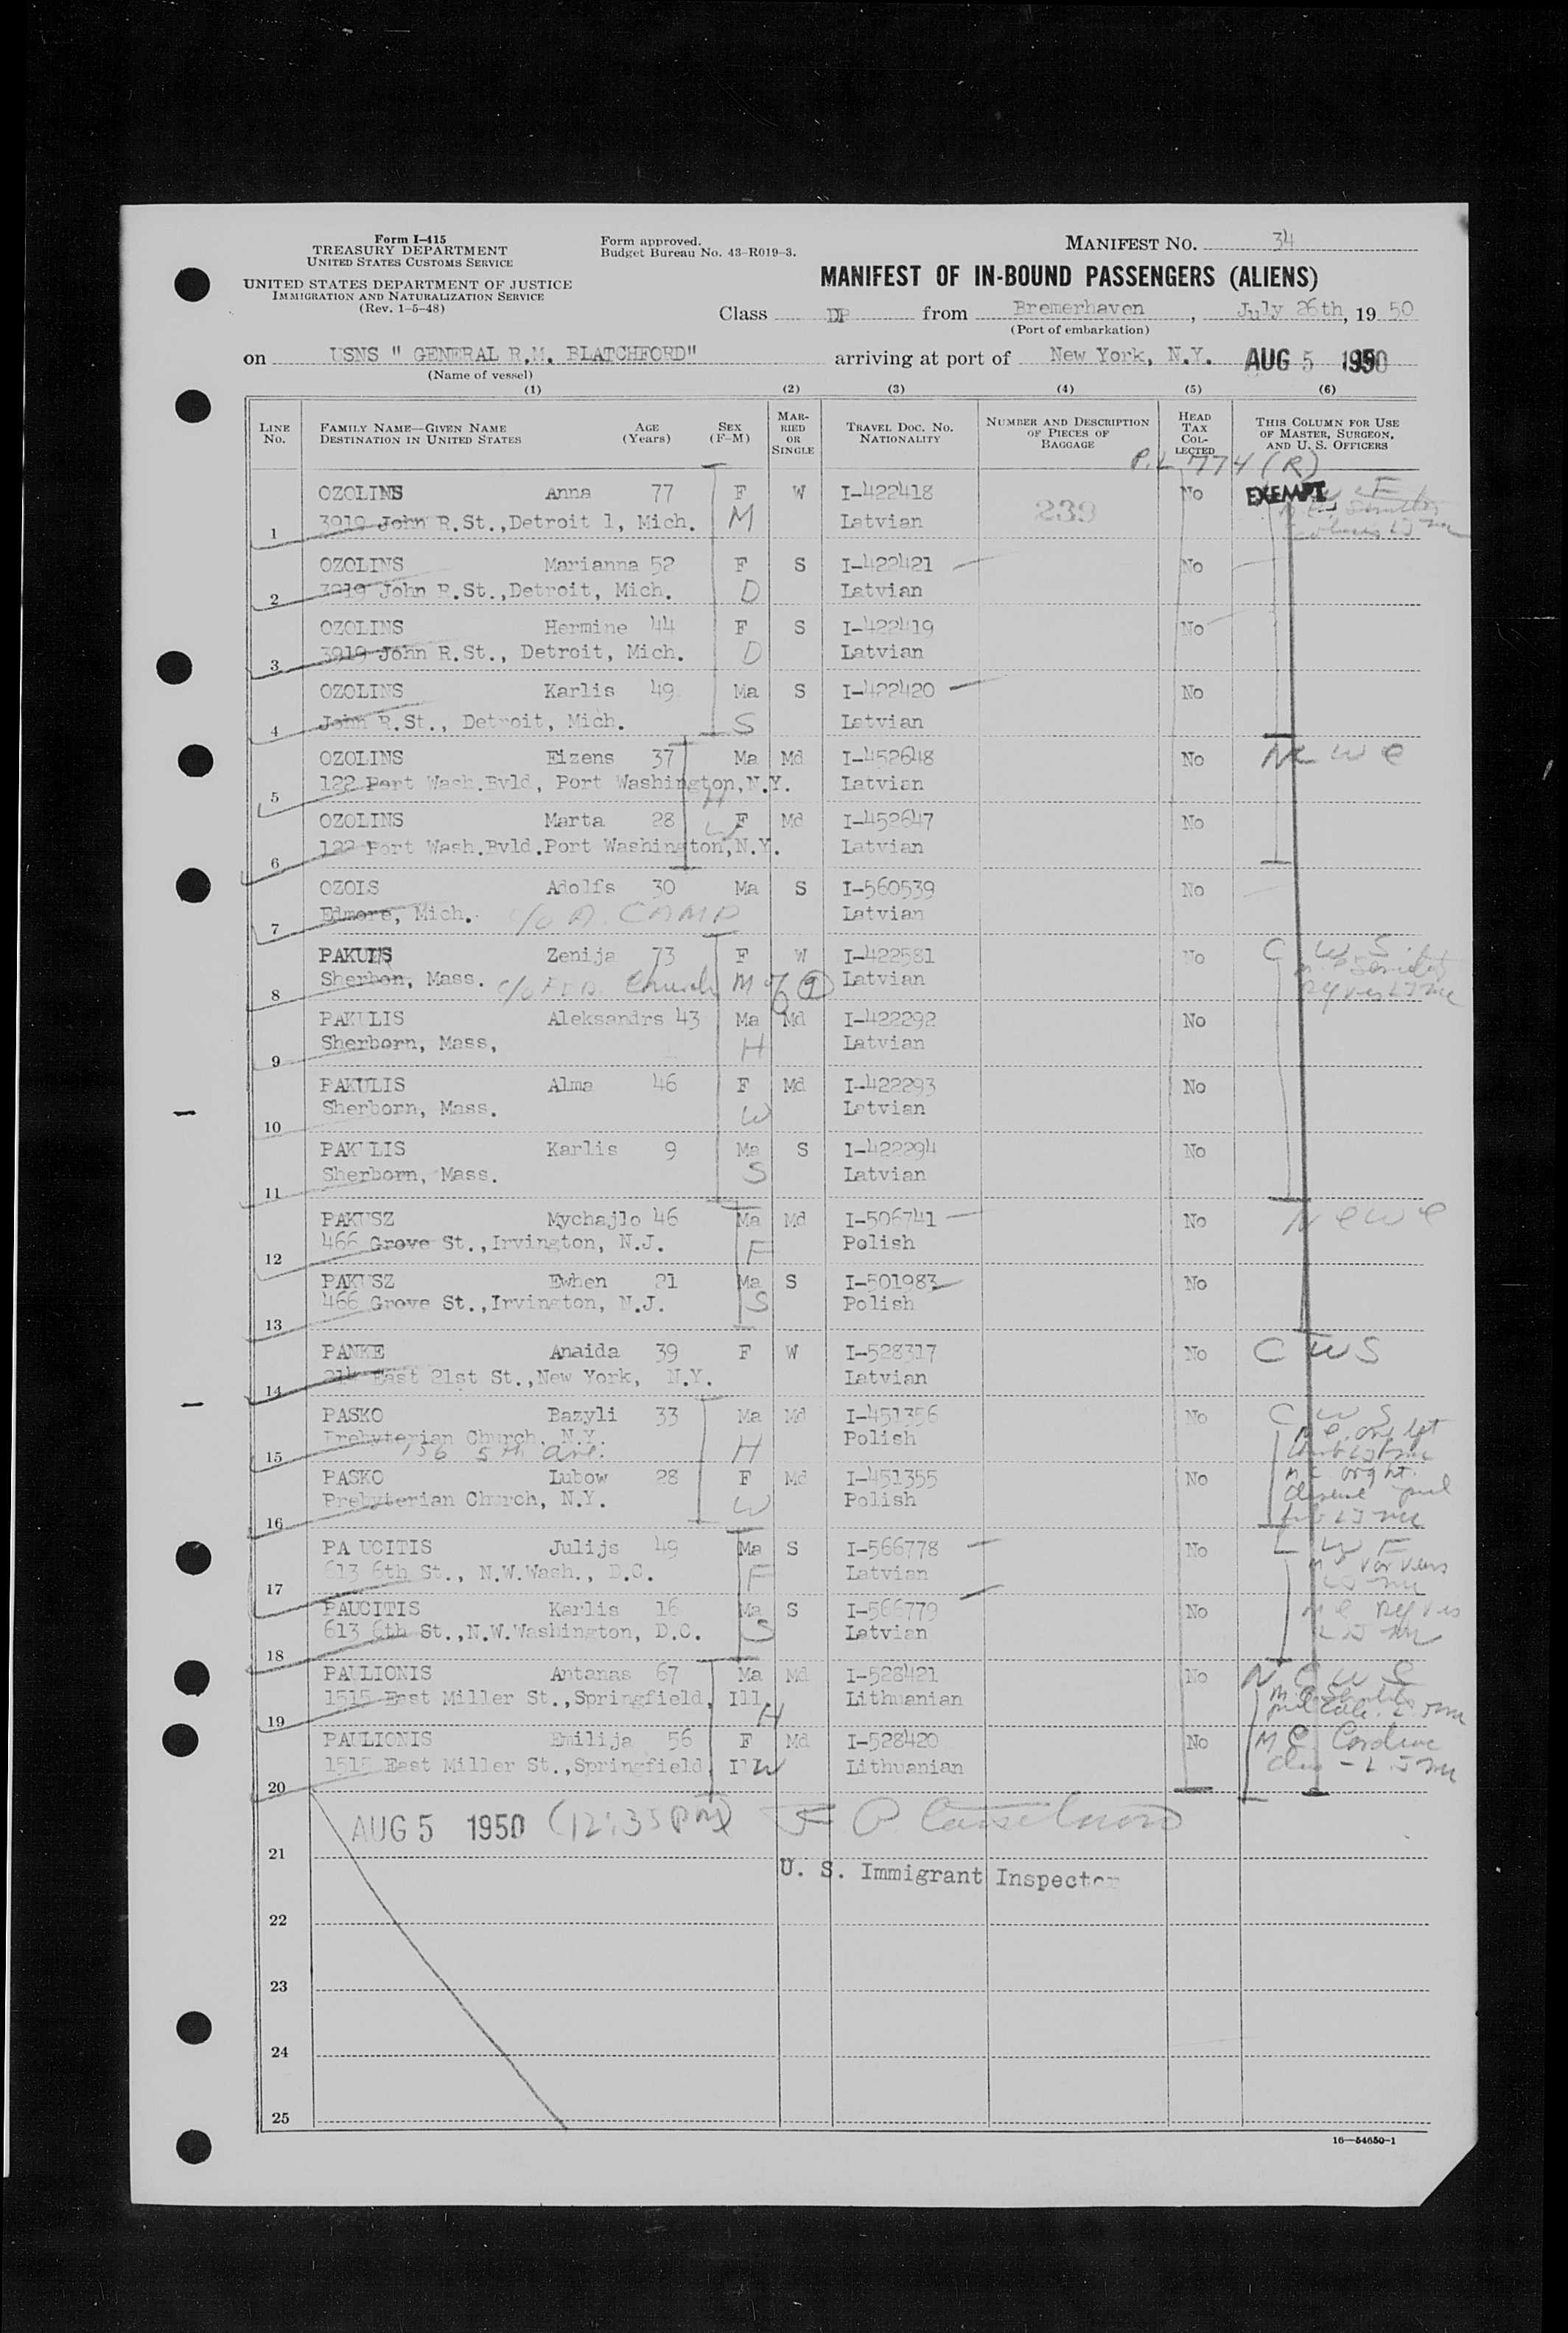 Form I-415
TREASURY DEPARTMENT
UNITED STATES CUSTOMS SERVICE
UNITED STATES DEPARTMENT OF JUSTICE
IMMIGRATION AND NATURALIZATION SERVICE
(Rev. 1-5-48)
Form approved.
Budget Bureau No. 43-R019-3.
MANIFEST NO. 34
MANIFEST OF IN-BOUND PASSENGERS (ALIENS)
Class DP from Bremerhaven, July 26th, 1950
(Port of embarkation)
on USNS " GENERAL R.M. BLATCHFORD" arriving at port of New York, N.Y. AUG 5 1950
(Name of vessel)
(1) (2) (3) (4) (5) (6)
LINE No. FAMILY NAME—GIVEN NAME DESTINATION IN UNITED STATES AGE (Years) SEX (F-M) MARRIED OR SINGLE TRAVEL DOC. NO. NATIONALITY NUMBER AND DESCRIPTION OF PIECES OF BAGGAGE HEAD TAX COLLECTED THIS COLUMN FOR USE OF MASTER, SURGEON, AND U. S. OFFICERS
P.L 774 (R)
OZOLINS Anna 77 F W I-422418 No EXEMPT
1 3919 John R.St.,Detroit 1, Mich. M Latvian 239
OZOLINS Marianna 52 F S I-422421 No
2 3919 John R.St.,Detroit, Mich. D Latvian
OZOLINS Hermine 44 F S I-422419 No
3 3919 John R.St., Detroit, Mich. D Latvian
OZOLINS Karlis 49 Ma S I-422420 No
4 John R.St., Detroit, Mich. S Latvian
OZOLINS Eizens 37 Ma Md I-452648 No
5 122 Port Wash.Bvld, Port Washington,N.Y. H Latvian
OZOLINS Marta 28 F Md I-452647 No
6 122 Port Wash.Bvld.Port Washington,N.Y. W Latvian
OZOLS Adolfs 30 Ma S I-560539 No
7 Edmore, Mich. c/o A. CAMP Latvian
PAKULIS Zenija 73 F W I-422581 No C W S
8 Sherbon, Mass. c/o Church M Latvian
PAKULIS Aleksandrs 43 Ma Md I-422292 No
9 Sherborn, Mass, H Latvian
PAKULIS Alma 46 F Md I-422293 No
10 Sherborn, Mass. W Latvian
PAKULIS Karlis 9 Ma S I-422294 No
11 Sherborn, Mass. S Latvian
PAKUSZ Mychajlo 46 Ma Md I-506741 No
12 466 Grove St.,Irvington, N.J. F Polish
PAKUSZ Ewhen 21 Ma S I-501983 No
13 466 Grove St.,Irvington, N.J. S Polish
PANKE Anaida 39 F W I-528317 No C W S
14 214 East 21st St.,New York, N.Y. Latvian
PASKO Bazyli 33 Ma Md I-451356 No C W S
Presbyterian Church, N.Y. Polish
15 156 5th Ave. H
PASKO Lubow 28 F Md I-451355 No
16 Presbyterian Church, N.Y. W Polish
PAUCITIS Julijs 49 Ma S I-566778 No
17 613 6th St., N.W.Wash., D.C. F Latvian
PAUCITIS Karlis 16 Ma S I-566779 No
18 613 6th St.,N.W.Washington, D.C. S Latvian
PAULIONIS Antanas 67 Ma Md I-528421 No
19 1515 East Miller St.,Springfield, Ill. H Lithuanian
PAULIONIS Emilija 56 F Md I-528420 No
20 1515 East Miller St.,Springfield Ill W Lithuanian
AUG 5 1950 (12:35 PM)
21 U. S. Immigrant Inspector
22
23
24
25
16-54650-1